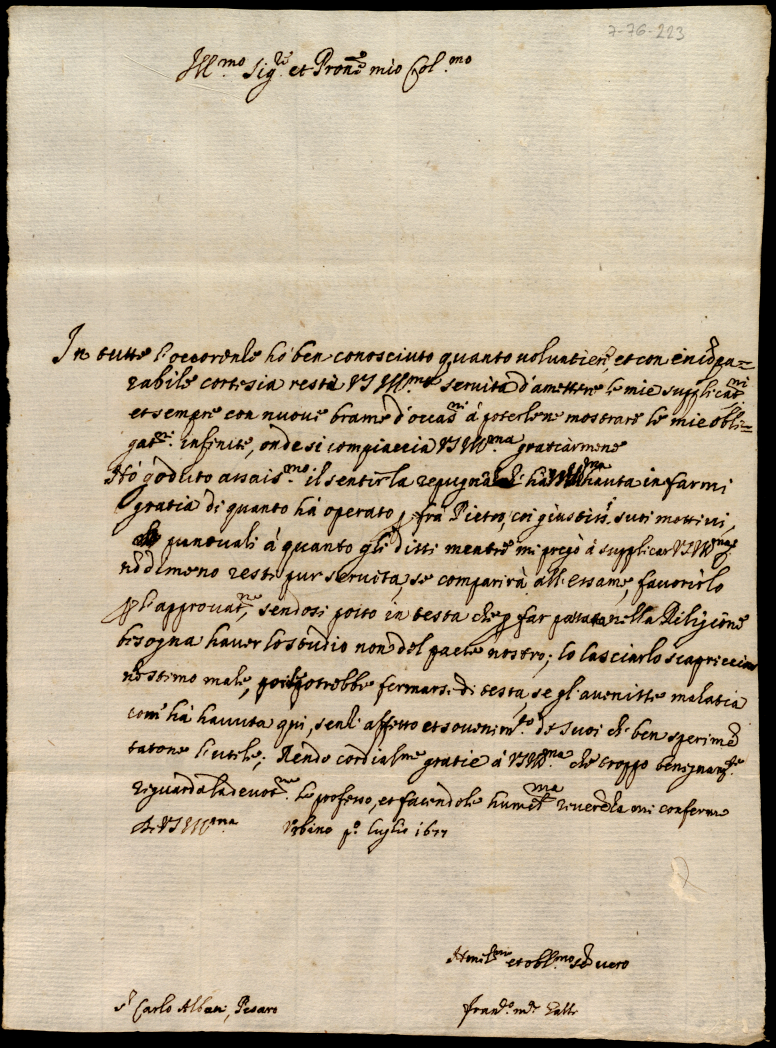 7-76-223
Ill.mo Sig.re et Pron.e mio Col.mo
In tutte l'occorenze hò ben conosciuto quanto voluntieri, et con
rabile cortesia resta V.S. Ill.ma servita d'amettere le mie supplicat.ni
et sempre con nuove brame d'occas.ni à poterlene mostrare le mie obli=
gat.ni infinite, onde si compiaccia V.S. Ill.ma gratiarmene
Hò goduto assais.mo il sentir la repugnaza hà V.S. Ill.ma hauta in farmi
gratia di quanto hà operato p fra Pietro, giusti suoi mottivi,
puntuali à quanto gli dissi mentre mi pregò à supplicar V.S. Ill.ma
nōdimeno resti pur servita, se comparirà all'essame, favorirlo
p l'approvat.ne, sendosi posto in testa che p far passata nella Religione
bisogna haver lo studio non del paese nostro; lo lasciarlo scapricciar
non stimo male, potrebbe fermarsi di testa, se gl'avenisse malatia
com' hà havuta qui, senz' affetto et sovenim.to de Suoi ben sperimē
tatone l'utile; Rendo cordialm.e gratie à V.S. Ill.ma che troppo benignam.te
riguarda la devot.ne le professo, et facendole humil.ma riverēza mi confermo
Di V.S. Ill.ma Urbino p.o luglio 1677
et obl.mo vero
S.r Carlo Albani, Pesaro
Fran.co